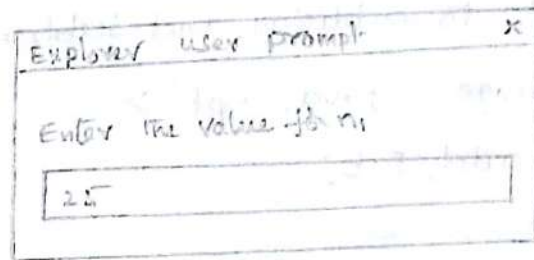 Explorer user prompt x
Enter the value for n1
25